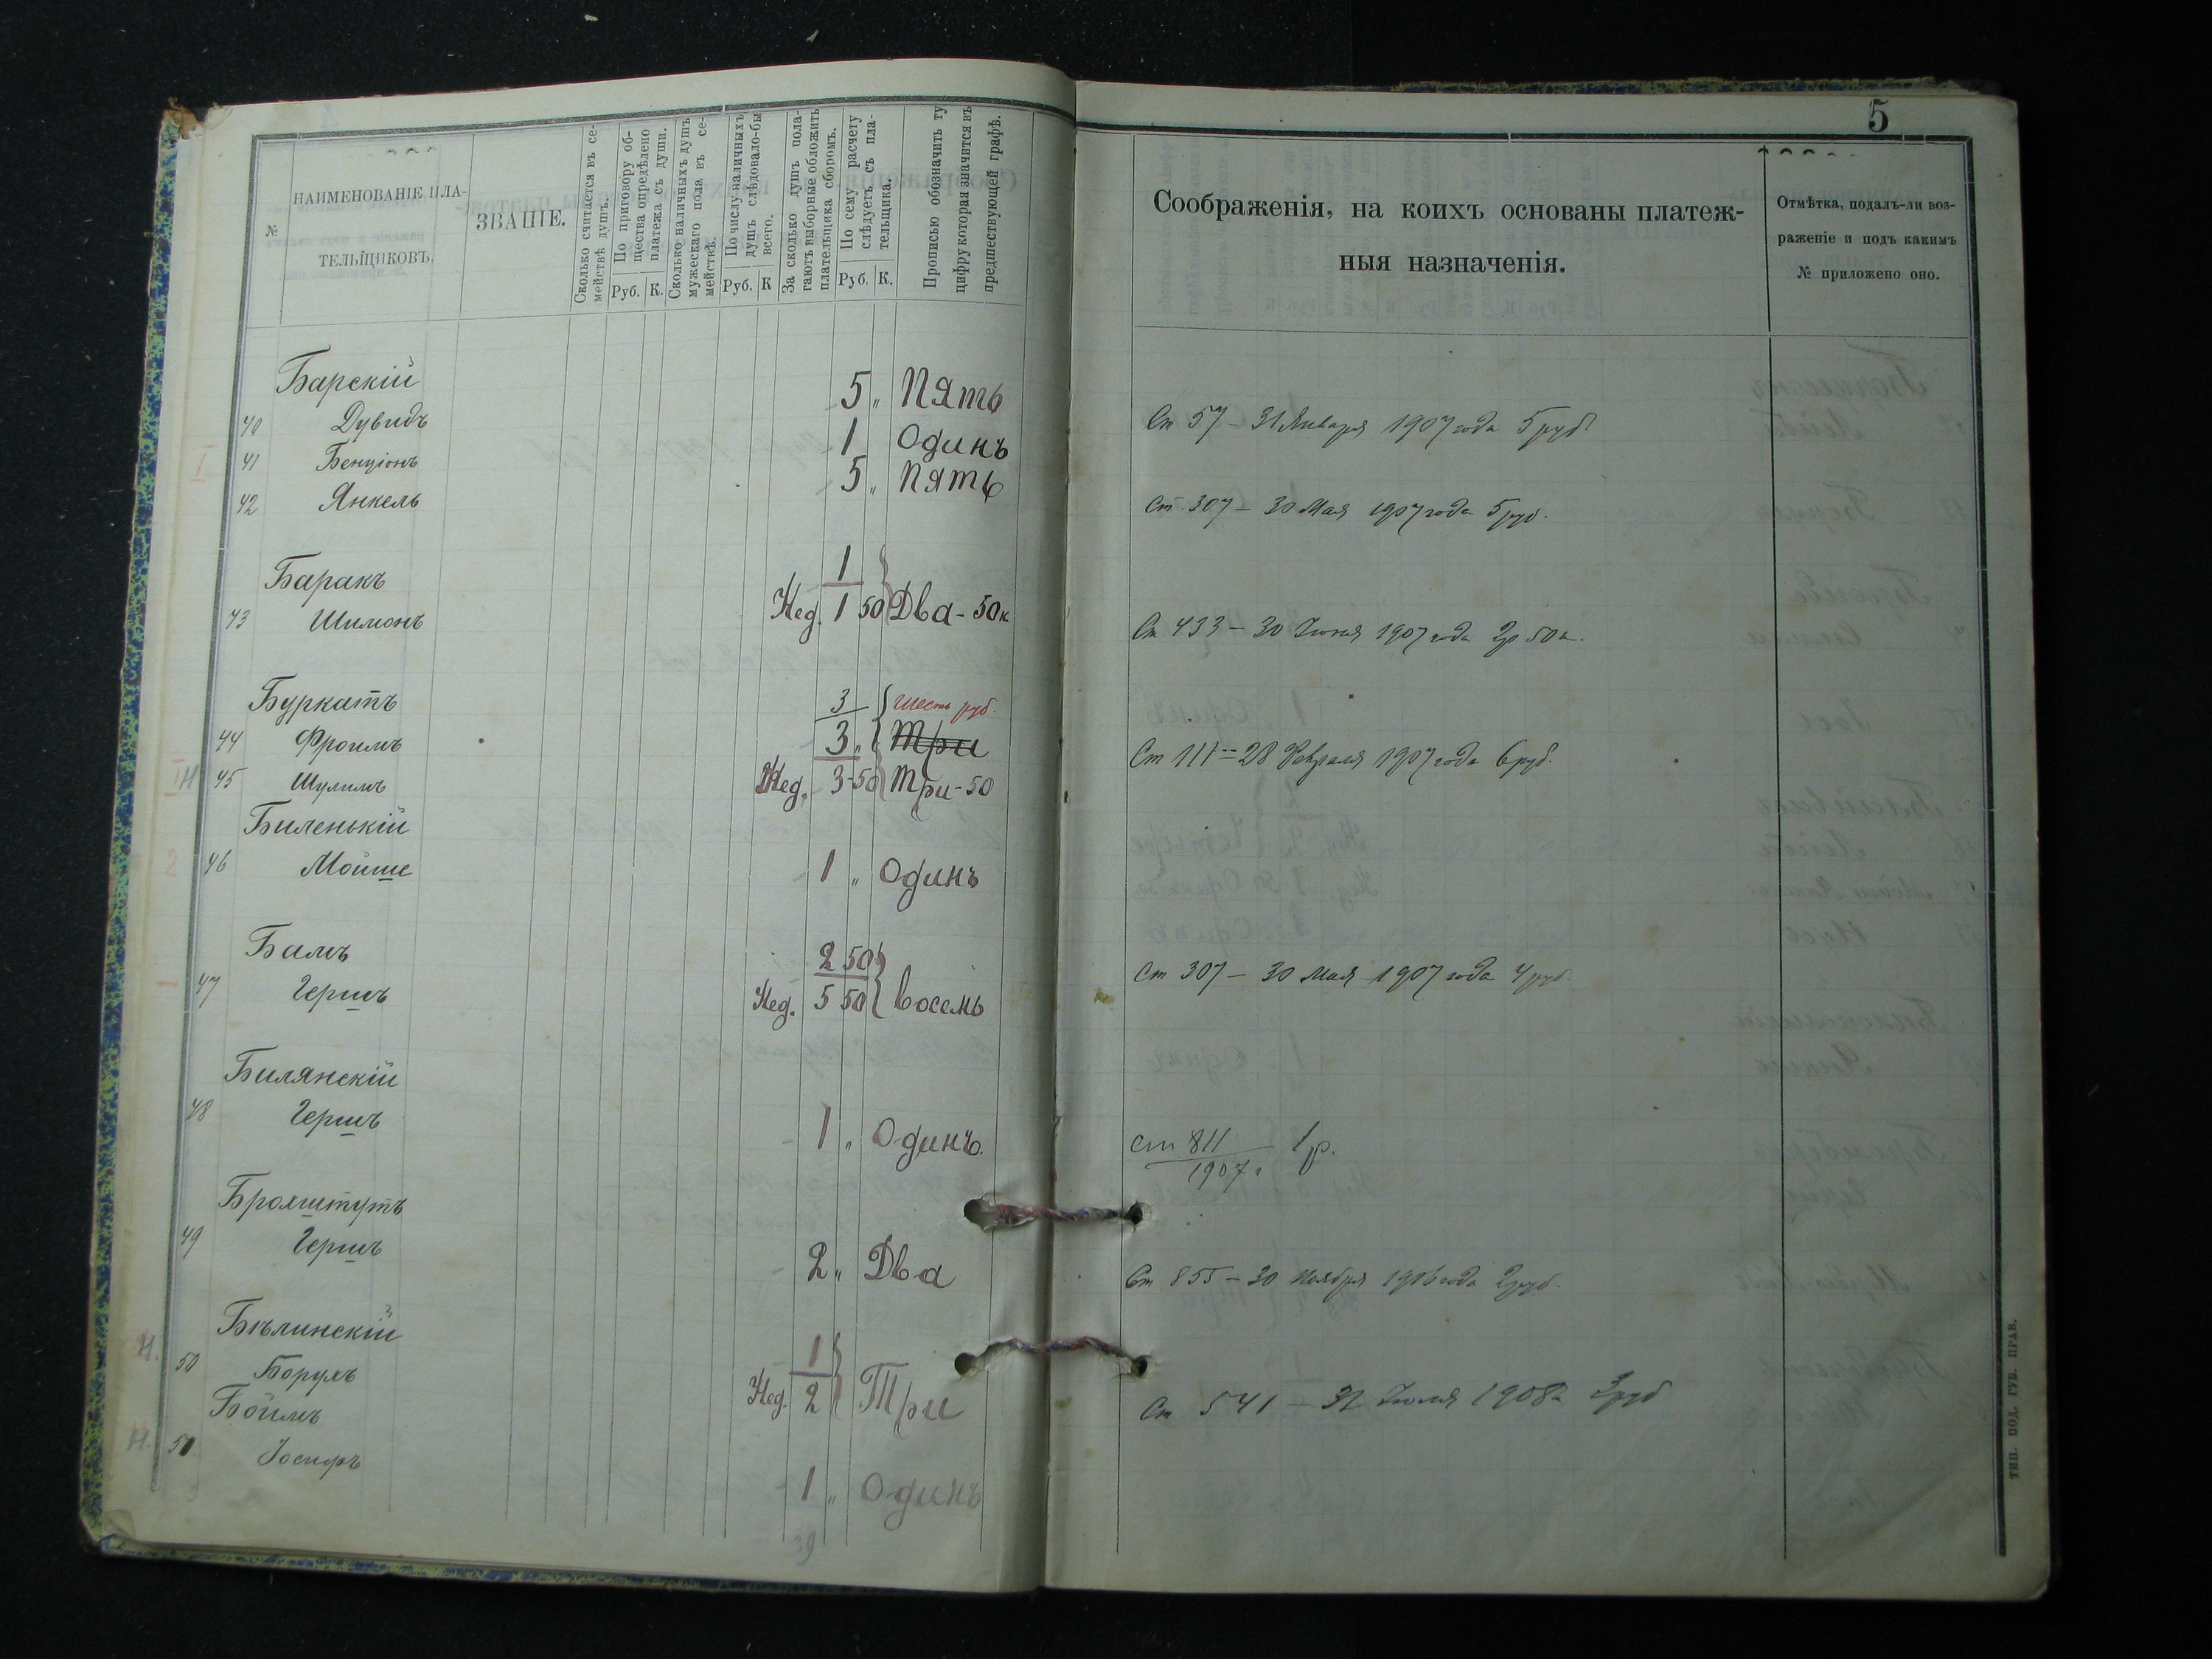 5
№
НАИМЕНОВАНІЕ ПЛА-
ТЕЛЬЩИКОВЪ.
ЗВАНІЕ.
Сколько считается въ се-
мействѣ душъ.
По приговору об-
щества опредѣлено
платежа съ души.
Руб. К.
Сколько наличныхъ душъ
мужескаго пола въ се-
мействѣ.
По числу наличныхъ
душъ слѣдовало-бы
всего.
Руб. К
За сколько душъ пола-
гаютъ выборные обложить
плательщика сборомъ.
По сему расчету
слѣдуетъ съ пла-
тельщика.
Руб. К.
Прописью обозначить ту
цифру которая значится въ
предшествующей графѣ.
Соображенія, на коихъ основаны платеж-
ныя назначенія.
Отмѣтка, подалъ-ли воз-
раженіе и подъ какимъ
№ приложено оно.
Барскій
40 Дувидъ 5 „ Пять Ст 57 – 31 Января 1907 года 5 руб.
I 41 Бенціонъ 1 Одинъ
42 Янкель 5 „ Пять Ст. 307 – 30 Мая 1907 года 5 руб.
Баракъ 1
43 Шимонъ Нед. 1 50 Два - 50 к Ст 433 – 30 Іюня 1907 года 2р 50 к.
Буркатъ 3 Шесть руб.
44 Фроимъ 3 „ Три Ст 111 – 28 Февраля 1907 года 6 руб.
Н 45 Шулимъ Нед. 3-50 Три-50
Биленькій
2 46 Мойше 1 „ Одинъ
Бамъ 2 50
47 Гершъ Нед. 5 50 Восемь Ст 307 – 30 Мая 1907 года 4 руб.
Билянскій
48 Гершъ 1 „ Одинъ. ст 811 1р.
1907 г
Брохштутъ
49 Гершъ 2 „ Два Ст 855 – 30 Ноября 1906 года 2 руб.
Бѣлинскій 1
Н. 50 Борухъ Нед. 2 Три Ст 541 – 31 Іюля 1908 г 3 руб
Боймъ
Н 51 Іосифъ 1 „ Одинъ
39
ТИП. ПОД. ГУБ. ПРАВ.